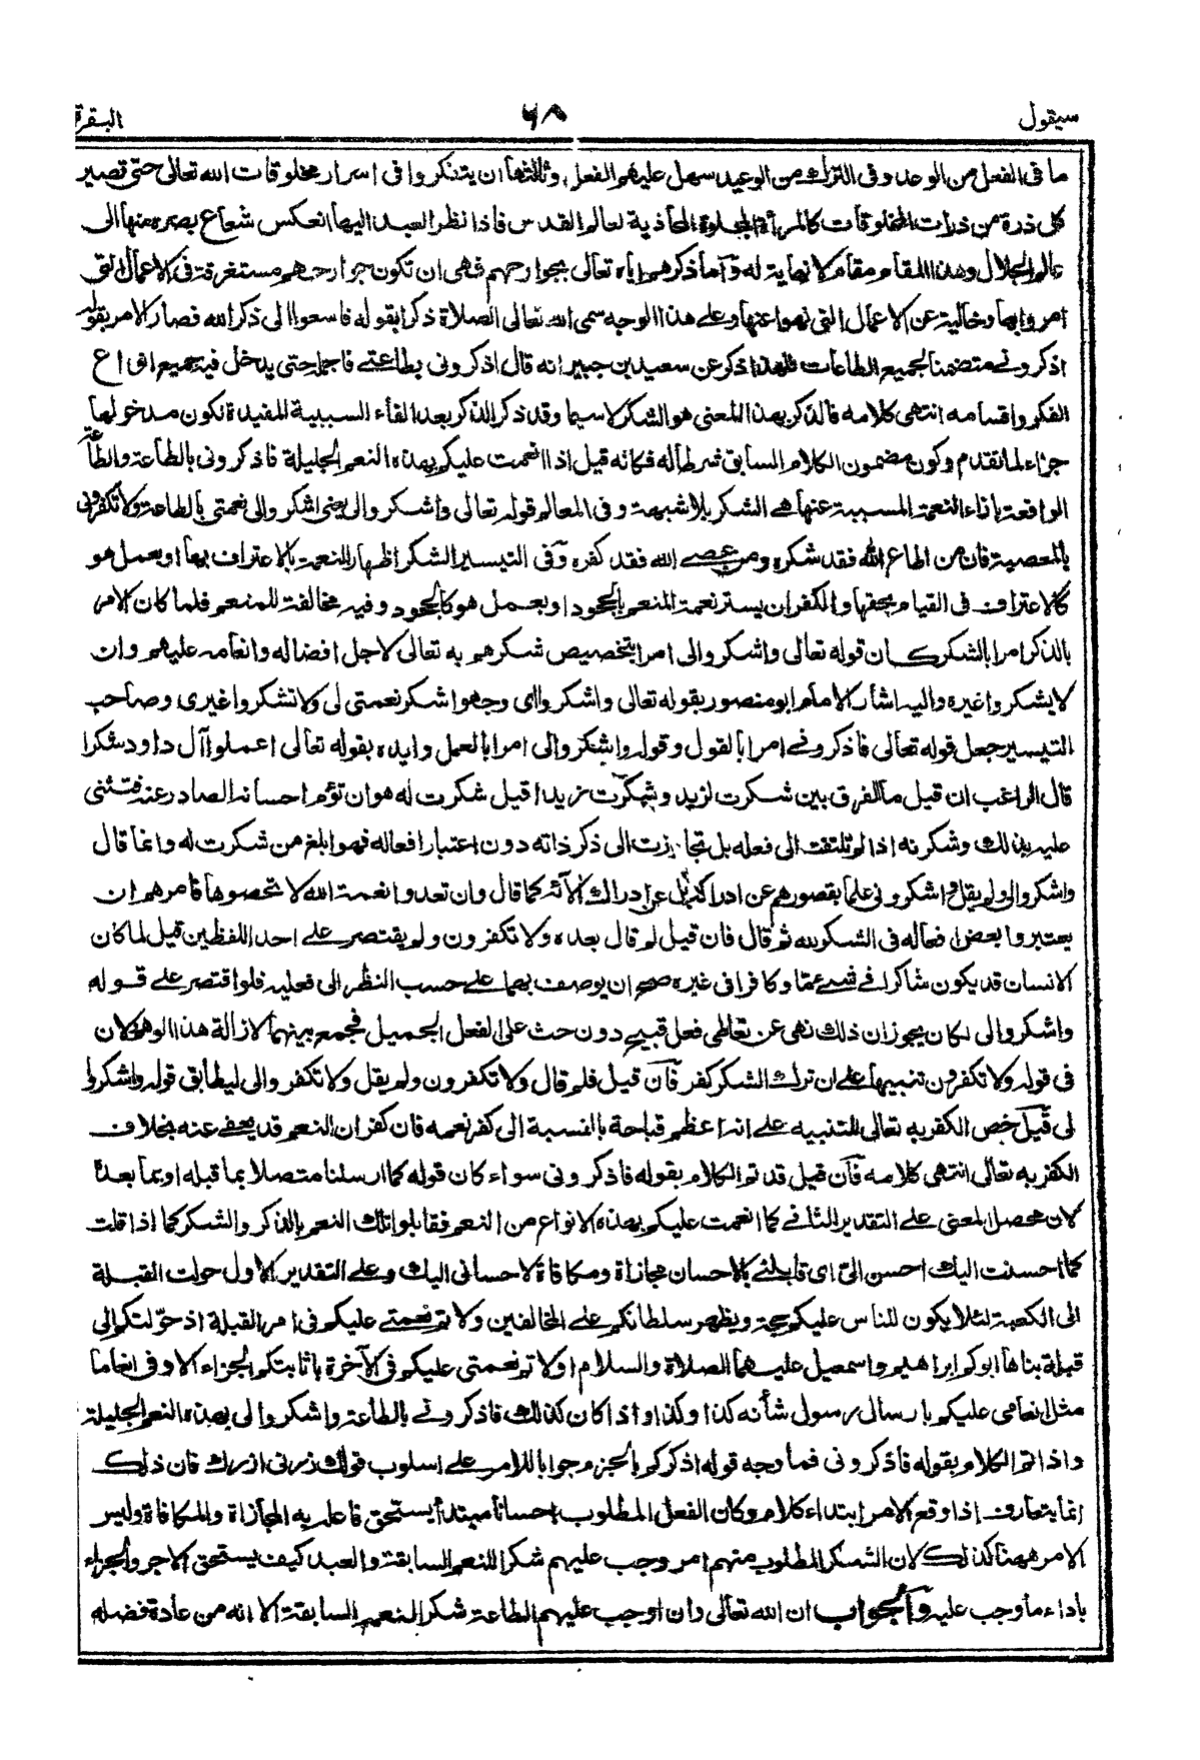 سيقول ٦٨ البقرة
ما فى الفعل من الوعد وفى الترك من الوعيد سهل عليهم الفعل وثالثها ان يتفكروا فى اسرار مخلوقات الله تعالى حتى تصير
كل ذرة من ذرات المخلوقات كالمرأة المجلوة المحاذية لعالم القدس فاذا نظر العبد اليها انعكس شعاع بصره منها الى
عالم الجلال وهذا المقام مقام لا نهاية له وآما ذكرهم اياه تعالى بجوارحهم فهى ان تكون جوارحهم مستغرقة فى الاعمال التى
امروا بها وخالية عن الاعمال التى نهوا عنها وعلى هذا الوجه سمى الله تعالى الصلاة ذكرا بقوله فاسعوا الى ذكر الله فصار الامر بقوله
اذكرونى متضمنا لجميع الطاعات فلهذا ذكر عن سعيد بن جبير انه قال اذكرونى بطاعتى فاجمله حتى يدخل فيه جميع انواع
الفكر واقسامه انتهى كلامه فالذكر بهذا المعنى هو الشكر لا سيما وقد ذكر الذكر بعد الفاء السببية المفيدة لكون مدخولها
جزاء لما تقدم وكون مضمون الكلام السابق شرطا له فكانه قيل اذا انعمت عليكم بهذه النعم الجليلة فاذكرونى بالطاعة والطاعة
الواقعة بازاء النعمة المسببة عنها هى الشكر بلا شبهة وفى المعالم قوله تعالى واشكروا لى يعنى اشكروا لى نعمتى بالطاعة ولا تكفرونى
بالمعصية فان من اطاع الله فقد شكره ومن عصى الله فقد كفره وفى التيسير الشكر اظهار النعمة بالاعتراف بها او بعمل هو
كالاعتراف فى القيام بحقها والكفران يستر نعمة المنعم بالجحود او بعمل هو كالجحود وفيه مخالفة للمنعم فلما كان الامر
بالذكر امرا بالشكر كان قوله تعالى واشكروا لى امرا بتخصيص شكرهم به تعالى لاجل افضاله وانعامه عليهم وان
لا يشكروا غيره واليه اشار الامام ابو منصور بقوله تعالى واشكروا اى وجهوا شكر نعمتى لى ولا تشكروا غيرى وصاحب
التيسير جعل قوله تعالى فاذكرونى امرا بالقول وقوله واشكروا لى امرا بالعمل وايده بقوله تعالى اعملوا آل داود شكرا
قال الراغب ان قيل ما الفرق بين شكرت لزيد وشكرت زيدا قيل شكرت له هو ان تؤم احسانه الصادر عنه فتثنى
عليه بذلك وشكرته اذا لم تلتفت الى فعله بل تجاوزت الى ذكر ذاته دون اعتبار افعاله فهو ابلغ من شكرت له وانما قال
واشكروا لى ولم يقل واشكرونى علما بقصورهم عن ادراكه بل عن ادراك الآئه كما قال وان تعدوا نعمة الله لا تحصوها فامرهم ان
يعتبروا بعض افعاله فى الشكر لله ثم قال فان قيل لم قال بعده ولا تكفرون ولم يقتصر على احد اللفظين قيل لما كان
الانسان قد يكون شاكرا فى شىء ما وكافرا فى غيره صح ان يوصف بهما على حسب النظر الى فعليه فلو اقتصر على قوله
واشكروا لى لكان يجوز ان ذلك نهى عن تعاطى فعل قبيح دون حث على الفعل الجميل فجمع بينهما لازالة هذا الوهم ولان
فى قوله ولا تكفرون تنبيها على ان ترك الشكر كفر فآن قيل فلم قال ولا تكفرون ولم يقل ولا تكفروا لى ليطابق قوله واشكروا
لى قيل خص الكفر به تعالى للتنبيه على انه اعظم قباحة بالنسبة الى كفر نعمه فان كفران النعم قد يعفى عنه بخلاف
الكفر به تعالى انتهى كلامه فآن قيل قد تم الكلام بقوله فاذكرونى سواء كان قوله كما ارسلنا متصلا بما قبله او بما بعده
لان محصل المعنى على التقدير الثانى كما انعمت عليكم بهذه الانواع من النعم فقابلوا تلك النعم بالذكر والشكر كما اذا قلت
كما احسنت اليك احسن الىّ اى قابلنى بالاحسان مجازاة ومكافاة لاحسانى اليك وعلى التقدير الاول حولت القبلة
الى الكعبة لئلا يكون للناس عليكم حجة ويظهر سلطانكم على المخالفين ولاتم نعمتى عليكم فى امر القبلة اذ حوّلتكم الى
قبلة بناها ابوكم ابراهيم واسمعيل عليهما الصلاة والسلام او لاتم نعمتى عليكم فى الآخرة باثابتكم الجزاء الاوفى انعاما
مثل انعامى عليكم بارسال رسول شأنه كذا وكذا واذا كان كذلك فاذكرونى بالطاعة واشكروا لى بهذه النعم الجليلة
واذا تم الكلام بقوله فاذكرونى فما وجه قوله اذكركم بالجزم جوابا للامر على اسلوب قولك زرنى ازرك فان ذلك
انما يتعارف اذا وقع الامر ابتداء كلام وكان الفعل المطلوب احسانا مبتدأ يستحق فاعله به المجازاة والمكافاة وليس
الامر ههنا كذلك لان الشكر المطلوب منهم امر وجب عليهم شكرا للنعم السابقة والعبد كيف يستحق الاجر والجزاء
باداء ما وجب عليه وآلجواب ان الله تعالى وان اوجب عليهم الطاعة شكر النعم السابقة الا انه من عادة فضله